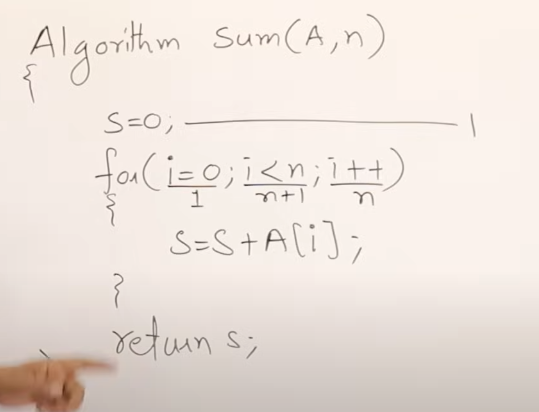 Algorithm Sum(A,n)
{
S=0; 1
for(i=0;i<n;i++)
1 n+1 n
{
S=S+A[i];
}
return s;